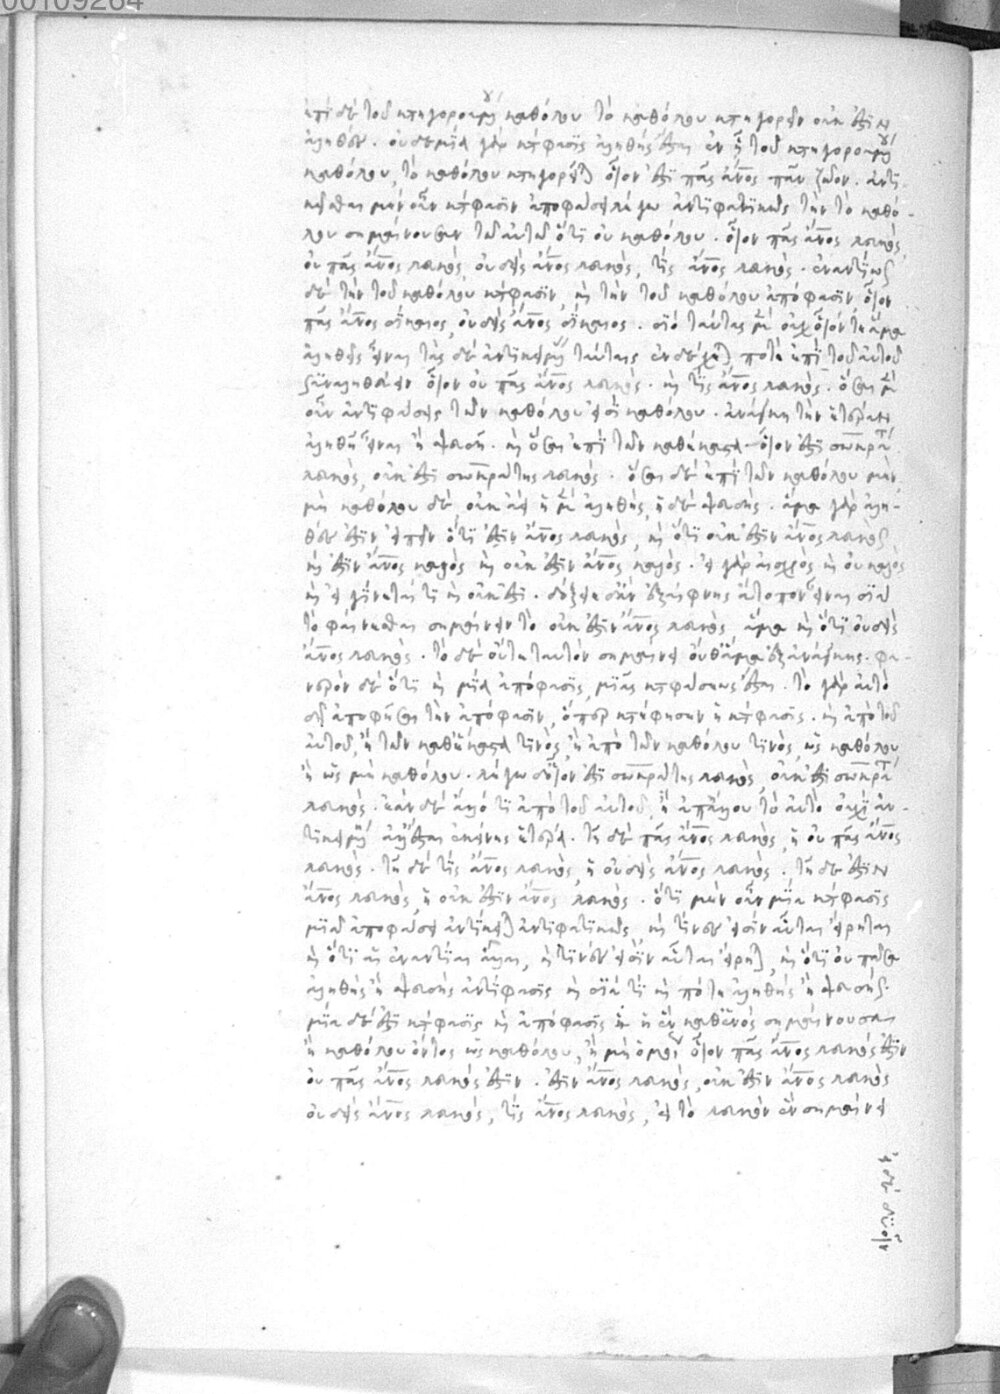 00109264
ἐπὶ δὲ τοῦ κατηγορουμένου καθόλου τὸ καθόλου κατηγορεῖν οὐκ ἔστιν
ἀληθές. οὐδεμία γὰρ κατάφασις ἀληθὴς ἔσται ἐν ᾗ τοῦ κατηγορουμένου
καθόλου, τὸ καθόλου κατηγορεῖται οἷον ἔστι πᾶς ἄνος πᾶν ζῶον. ἀντι-
κεῖσθαι μὲν οὖν κατάφασιν ἀποφάσει λέγω ἀντιφατικῶς τὴν τὸ καθό-
λου σημαίνουσαν τῶ αὐτῶ ὅτι οὐ καθόλου. οἷον πᾶς ἄνος λευκός,
οὐ πᾶς ἄνος λευκός, οὐδεὶς ἄνος λευκός, τὶς ἄνος λευκός. ἐναντίως
δὲ τὴν τοῦ καθόλου κατάφασιν, καὶ τὴν τοῦ καθόλου ἀπόφασιν, οἷον
πᾶς ἄνος δίκαιος, οὐδεὶς ἄνος δίκαιος. διὸ ταύτας μὲν οὐχ οἷόν τε ἅμα
ἀληθεῖς εἶναι τὰς δὲ ἀντικειμένας ταύταις ἐνδέχεται ποτὲ ἐπὶ τοῦ αὐτοῦ
συναληθεύειν οἷον οὐ πᾶς ἄνος λευκός. καὶ τὶς ἄνος λευκός. ὅσαι μὲν
οὖν ἀντιφάσεις τῶν καθόλου εἰσὶ καθόλου. ἀνάγκη τὴν ἑτέραν
ἀληθῆ εἶναι ἢ ψευδῆ. καὶ ὅσαι ἐπὶ τῶν καθέκαστα οἷον ἔστι σωκράτης
λευκός, οὐκ ἔστι σωκράτης λευκός. ὅσαι δὲ ἐπὶ τῶν καθόλου μὲν,
μὴ καθόλου δέ, οὐκ ἀεὶ ἡ μὲν ἀληθὴς, ἡ δὲ ψευδής. ἅμα γὰρ ἀλη-
θές ἐστιν εἰπεῖν ὅτι ἔστιν ἄνος λευκός, καὶ ὅτι οὐκ ἔστιν ἄνος λευκός
καὶ ἔστιν ἄνος καλὸς καὶ οὐκ ἔστιν ἄνος καλός. εἰ γὰρ αἰσχρὸς καὶ οὐ καλός
καὶ εἰ γίνεταί τι καὶ οὐκ ἔστι. δόξειε δ' ἂν ἐξαίφνης ἄτοπον εἶναι διὰ
τὸ φαίνεσθαι σημαίνειν τὸ οὐκ ἔστιν ἄνος λευκός ἅμα καὶ ὅτι οὐδεὶς
ἄνος λευκός. τὸ δὲ οὔτε ταυτόν σημαίνει οὔθ' ἅμα ἐξ ἀνάγκης. φα-
νερὸν δὲ ὅτι καὶ μία ἀπόφασις μιᾶς καταφάσεως ἔσται. τὸ γὰρ αὐτὸ
δεῖ ἀποφῆσαι τὴν ἀπόφασιν, ὅπερ κατέφησεν ἡ κατάφασις. καὶ ἀπὸ τοῦ
αὐτοῦ, ἢ τῶν καθέκαστά τινος, ἢ ἀπὸ τῶν καθόλου τινός, ὡς καθόλου
ἢ ὡς μὴ καθόλου. λέγω δὲ οἷον ἔστι σωκράτης λευκός, οὐκ ἔστι σωκράτης
λευκός. ἐὰν δὲ ἄλλό τι ἀπὸ τοῦ αὐτοῦ, ἢ ἀπ' ἄλλου τὸ αὐτὸ οὐχὶ ἀν-
τικειμένη ἀλλ' ἔσται ἐκείνης ἑτέρα. τῆ δὲ πᾶς ἄνος λευκός, ἡ οὐ πᾶς ἄνος
λευκός. τῆ δὲ τὶς ἄνος λευκός, ἡ οὐδεὶς ἄνος λευκός. τῆ δὲ ἔστιν
ἄνος λευκός, ἡ οὐκ ἔστιν ἄνος λευκός. ὅτι μὲν οὖν μία κατάφασις
μιᾶ ἀποφάσει ἀντίκειται ἀντιφατικῶς καὶ τίνες εἰσὶν αὗται εἴρηται
καὶ ὅτι αἱ ἐναντίαι ἄλλαι, καὶ τίνες εἰσὶν αὗται εἴρηται, καὶ ὅτι οὐ πᾶσα
ἀληθὴς ἢ ψευδὴς ἀντίφασις καὶ διὰ τί καὶ πότε ἀληθὴς ἢ ψευδής.
μία δέ ἐστι κατάφασις καὶ ἀπόφασις ἡ ἓν καθ' ἑνὸς σημαίνουσα
ἢ καθόλου ὄντος ὡς καθόλου, ἢ μὴ ὁμοίως οἷον πᾶς ἄνος λευκός ἐστιν
οὐ πᾶς ἄνος λευκός ἐστιν. ἔστιν ἄνος λευκός, οὐκ ἔστιν ἄνος λευκός
οὐδεὶς ἄνος λευκός, τὶς ἄνος λευκός, εἰ τὸ λευκὸν ἓν σημαίνει